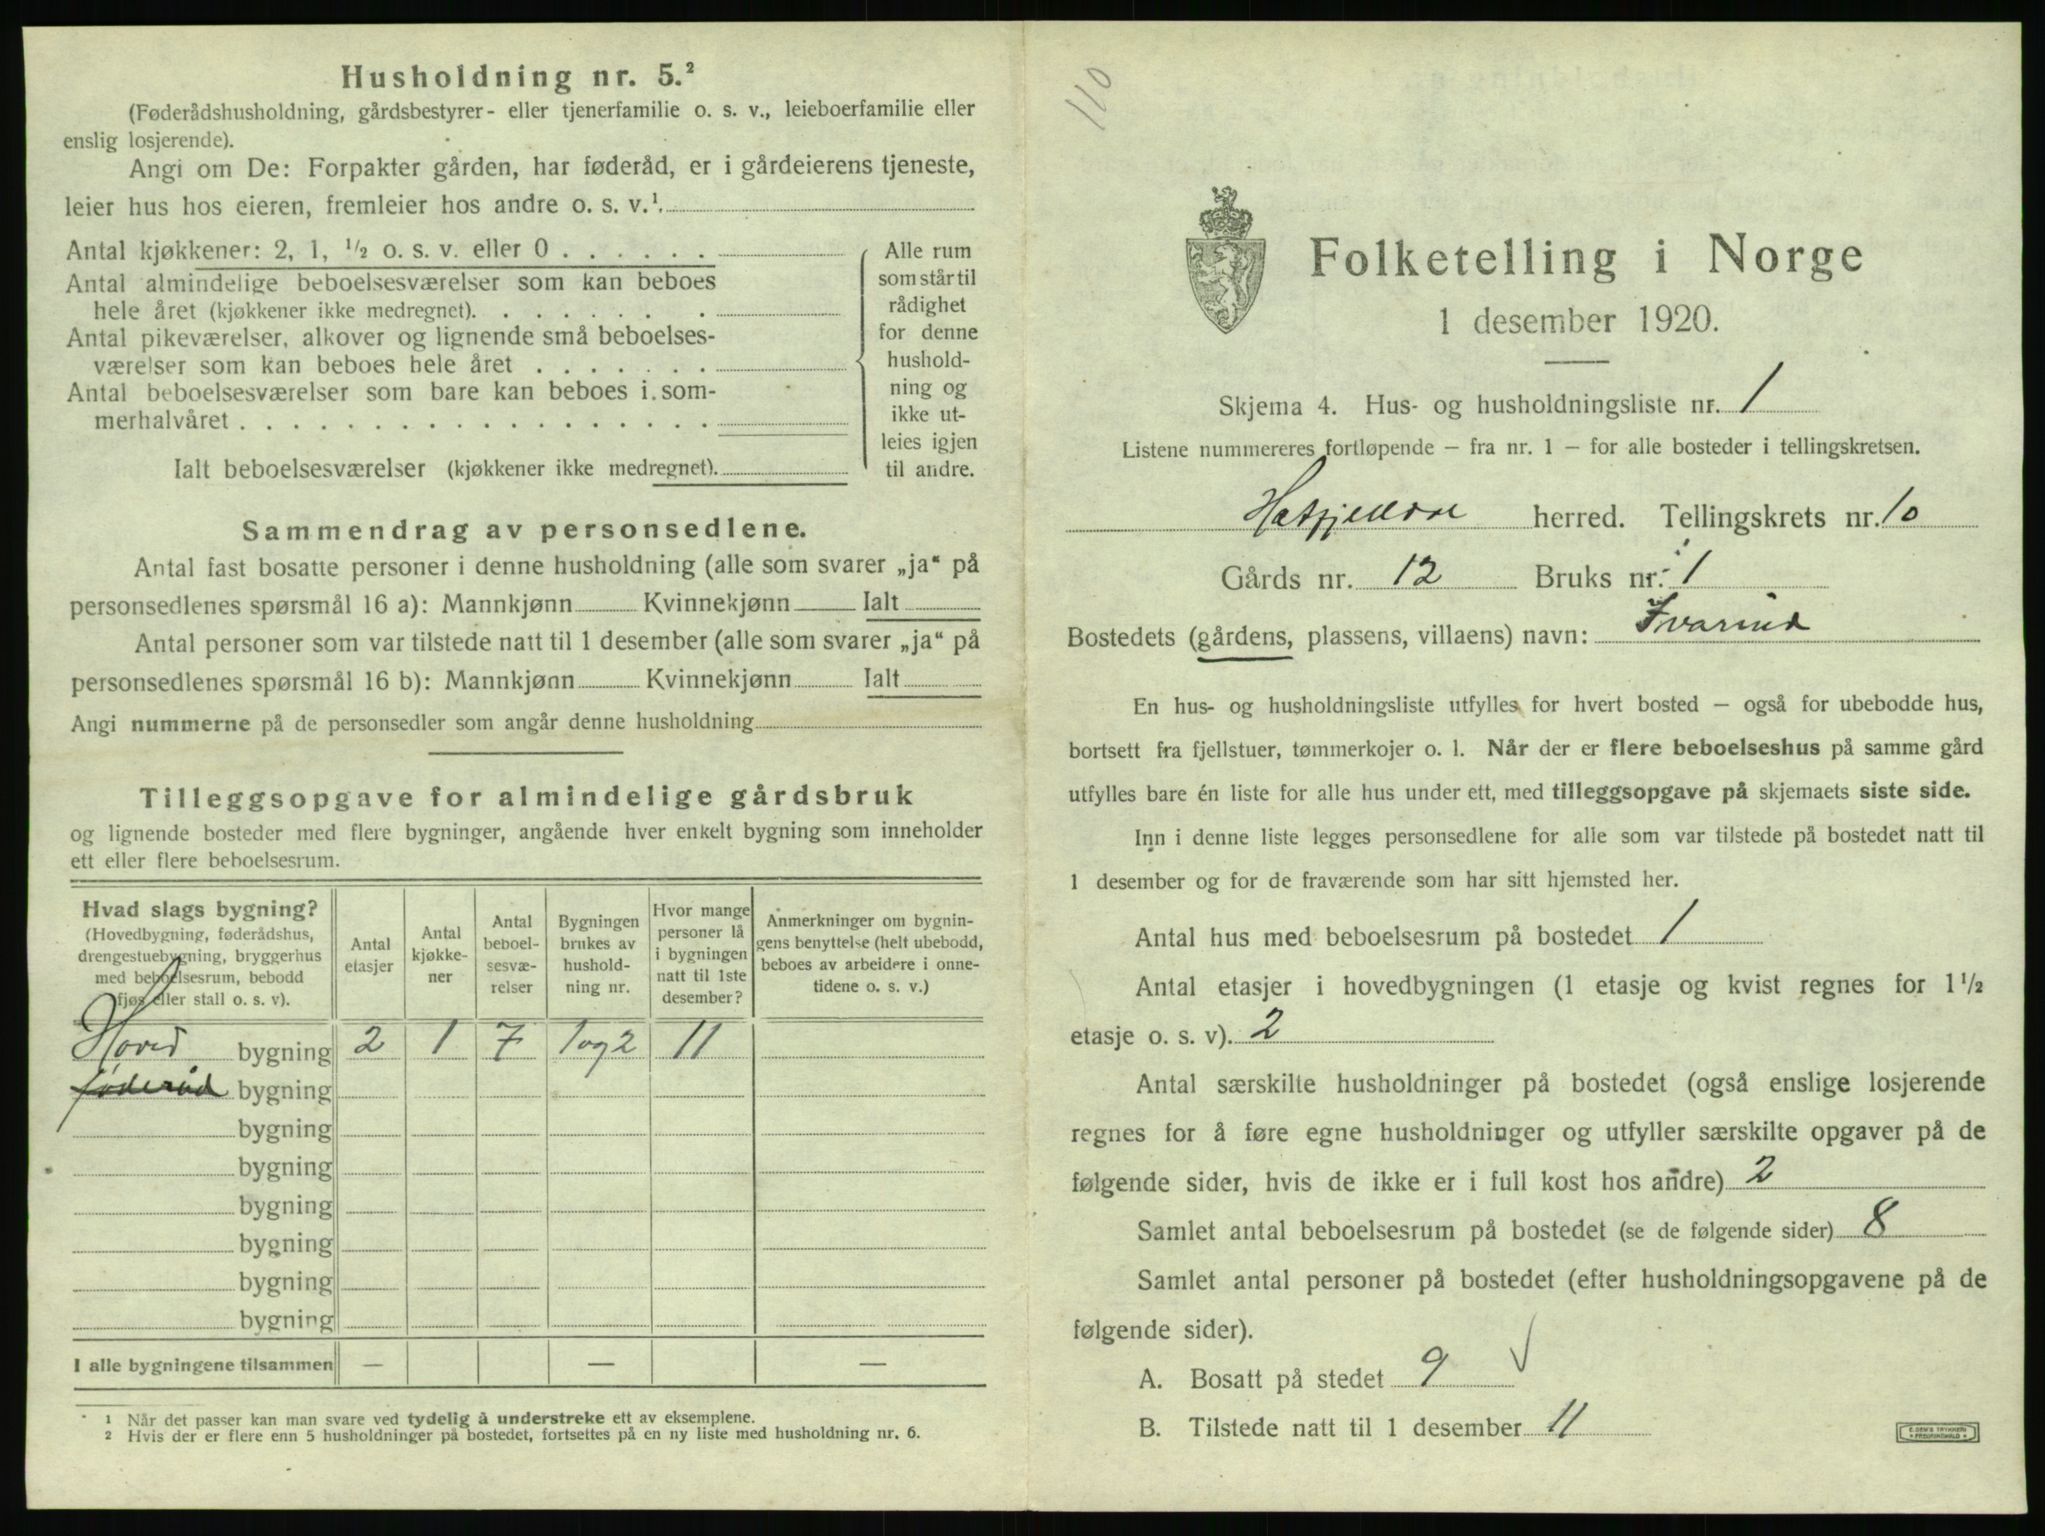 Husholdning nr. 5.²
(Føderådshusholdning, gårdsbestyrer- eller tjenerfamilie o. s. v., leieboerfamilie eller
enslig losjerende).
Angi om De: Forpakter gården, har føderåd, er i gårdeierens tjeneste,
leier hus hos eieren, fremleier hos andre o. s. v.¹
Antal kjøkkener: 2, 1, ½ o. s. v. eller 0 . . . . . .
Antal almindelige beboelsesværelser som kan beboes
hele året (kjøkkener ikke medregnet). . . . . . . .
Antal pikeværelser, alkover og lignende små beboelses-
værelser som kan beboes hele året . . . . . . .
Antal beboelsesværelser som bare kan beboes i som-
merhalvåret . . . . . . . . . . . . . . . . . .
Ialt beboelsesværelser (kjøkkener ikke medregnet).
Alle rum
som står til
rådighet
for denne
hushold-
ning og
ikke ut-
leies igjen
til andre.
Sammendrag av personsedlene.
Antal fast bosatte personer i denne husholdning (alle som svarer „ja“ på
personsedlenes spørsmål 16 a): Mannkjønn Kvinnekjønn Ialt
Antal personer som var tilstede natt til 1 desember (alle som svarer „ja“ på
personsedlenes spørsmål 16 b): Mannkjønn Kvinnekjønn Ialt
Angi nummerne på de personsedler som angår denne husholdning
Tilleggsopgave for almindelige gårdsbruk
og lignende bosteder med flere bygninger, angående hver enkelt bygning som inneholder
ett eller flere beboelsesrum.
Hvad slags bygning?
(Hovedbygning, føderådshus,
drengestuebygning, bryggerhus
med beboelsesrum, bebodd
fjøs eller stall o. s. v).
Antal
etasjer
Antal
kjøkke-
ner
Antal
beboel-
sesvæ-
relser
Bygningen
brukes av
hushold-
ning nr.
Hvor mange
personer lå
i bygningen
natt til 1ste
desember?
Anmerkninger om bygnin-
gens benyttelse (helt ubebodd,
beboes av arbeidere i onne-
tidene o. s. v.)
Hoved bygning 2 1 7 1 og 2 11
føderåd bygning
bygning
bygning
bygning
bygning
bygning
bygning
I alle bygningene tilsammen — — —
1 Når det passer kan man svare ved tydelig å understreke ett av eksemplene.
2 Hvis der er flere enn 5 husholdninger på bostedet, fortsettes på en ny liste med husholdning nr. 6.
110
Folketelling i Norge
1 desember 1920.
Skjema 4. Hus- og husholdningsliste nr. 1
Listene nummereres fortløpende — fra nr. 1 — for alle bosteder i tellingskretsen.
herred. Tellingskrets nr. 10
Gårds nr. 12 Bruks nr. 1
Bostedets (gårdens, plassens, villaens) navn:
En hus- og husholdningsliste utfylles for hvert bosted — også for ubebodde hus,
bortsett fra fjellstuer, tømmerkojer o. l. Når der er flere beboelseshus på samme gård
utfylles bare én liste for alle hus under ett, med tilleggsopgave på skjemaets siste side.
Inn i denne liste legges personsedlene for alle som var tilstede på bostedet natt til
1 desember og for de fraværende som har sitt hjemsted her.
Antal hus med beboelsesrum på bostedet 1
Antal etasjer i hovedbygningen (1 etasje og kvist regnes for 1½
etasje o. s. v). 2
Antal særskilte husholdninger på bostedet (også enslige losjerende
regnes for å føre egne husholdninger og utfyller særskilte opgaver på de
følgende sider, hvis de ikke er i full kost hos andre) 2
Samlet antal beboelsesrum på bostedet (se de følgende sider) 8
Samlet antal personer på bostedet (efter husholdningsopgavene på de
følgende sider).
A. Bosatt på stedet 9 √
B. Tilstede natt til 1 desember 11